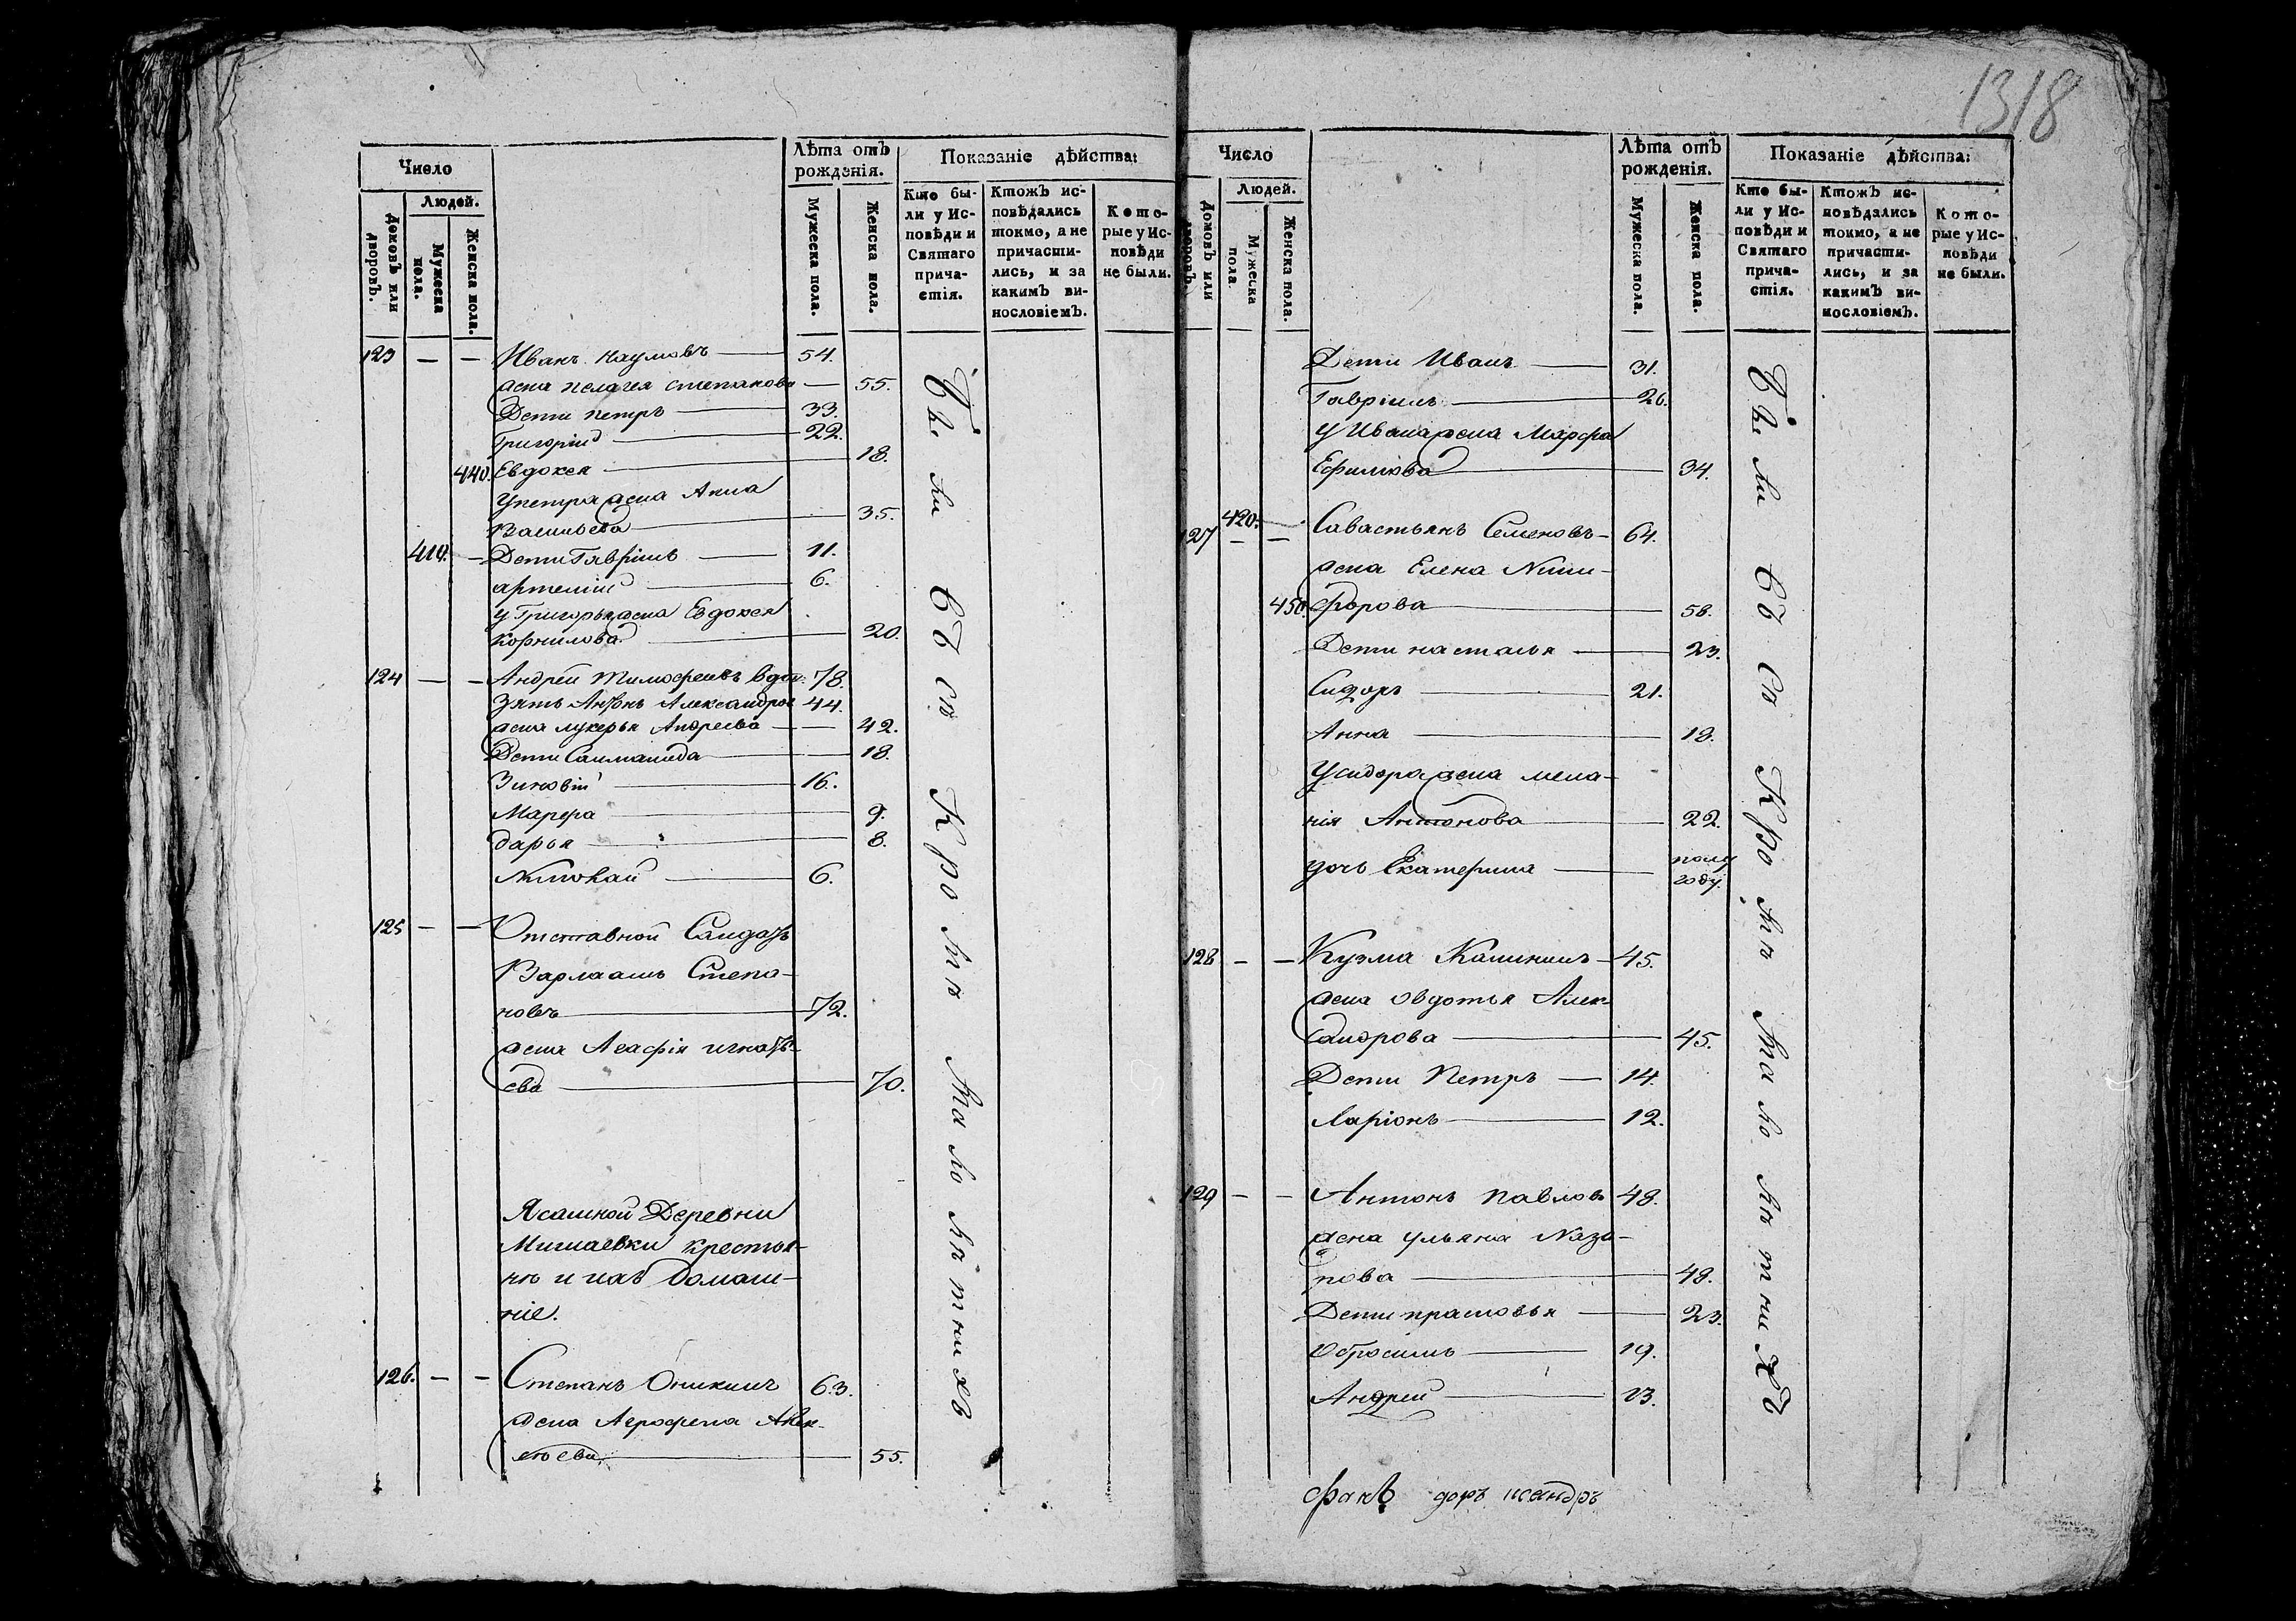 1318
Число
Лѣта отъ рожденія.
Показаніе дѣйства:
Людей.
Домовъ или дворовъ.
Мужеска пола.
Женска пола.
Мужеска пола.
Женска пола.
Кто были у Исповѣди и Святаго причастія.
Ктожъ исповѣдались токмо, а не причастились, и за какимъ винословіемъ.
Которые у Исповѣди не были.
123 — — Иванъ наумовъ — 54.
жена пелагея степанова — 55.
Дети петръ — 33.
Григорій — 22.
440. Евдокея — 18.
у петра жена Анна
Васильева — 35.
410. — Дети Гавріилъ — 11.
артемій — 6.
у Григорья жена Евдокея
корнилова — 20.
124 — — Андрей Тимофеевъ вдов. 78.
Зять Антонъ Александров 44.
жена лукерья Андреева — 42.
Дети — 18.
Зиновій — 16.
Марфа — 9.
дарья — 8.
Николай — 6.
125 — — Отставной Салдатъ
Варлаамъ Степа-
новъ — 72.
жена Агафія игнать-
ева — 70.
Ясашной Деревни
крестья-
не и ихъ домаш-
ніе.
126. — — Степанъ Оникинъ 63.
жена Агрофена Алек-
сеева — 55.
Были всѣ кромѣ малолѣтнихъ
Число
Лѣта отъ рожденія.
Показаніе дѣйства:
Людей.
Домовъ или дворовъ.
Мужеска пола.
Женска пола.
Мужеска пола.
Женска пола.
Кто были у Исповѣди и Святаго причастія.
Ктожъ исповѣдались токмо, а не причастились, и за какимъ винословіемъ.
Которые у Исповѣди не были.
Дети Иванъ — 31.
Гавріилъ — 26.
у Ивана жена Марфа
Ефимова — 34.
420. —
127 — — Савастьянъ Семеновъ — 64.
жена Елена Ники-
450. форова — 58.
Дети насталья — 23.
Сидоръ — 21.
Анна — 18.
у сидора жена мела-
нія Антонова — 22.
дочь Екатерина — полу году.
128 — — Кузма Калининъ — 45.
жена овдотья Алек-
сандрова — 45.
Дети Петръ — 14.
Ларіонъ — 12.
129 — — Антонъ павловъ 48.
жена ульяна
— 48.
Дети прасковья — 23.
Обросимъ — 19.
Андрей — 13.
Были всѣ кромѣ малолѣтнихъ